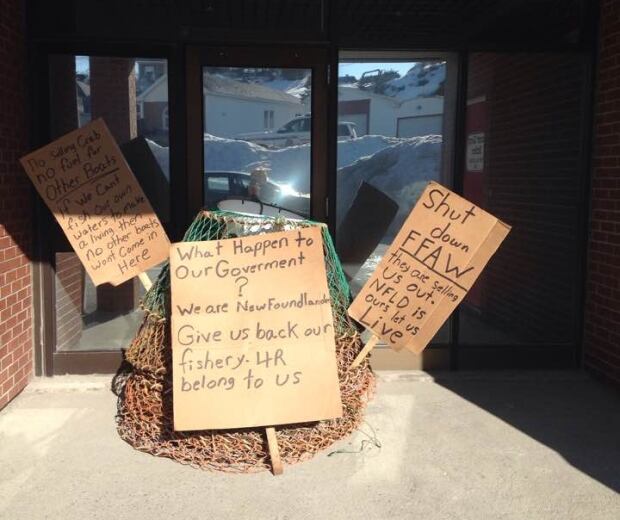 No selling Crab
no fuel for
Other Boats
If we Can't
fish our own
waters to make
a living then
no other boats
wont Come in
Here
What Happen to
Our Goverment
?
We are NewFoundlande
Give us back our
fishery. 4R
belong to us
Shut
down
FFAW
they are selling
us out.
NFLD is
ours let us
Live